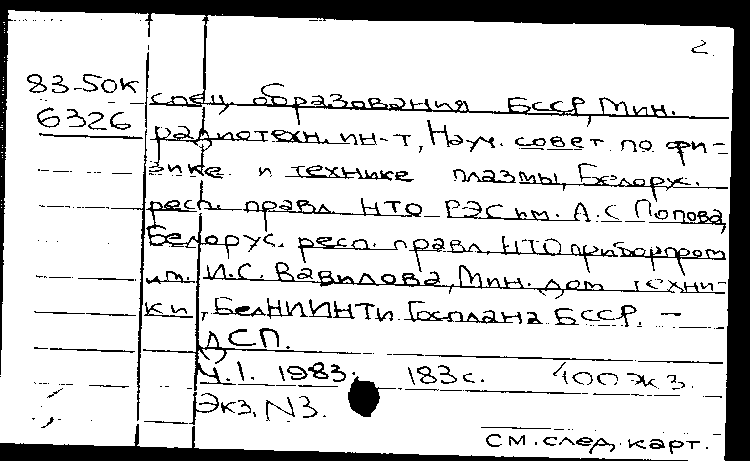 2.
83-50к
6326
спец. образования БССР, Мин.
радиотехн. ин-т, Науч. совет по фи-
зике и технике плазмы, Белорус.
респ. правл. НТО РЭС им. А.С Попова,
Белорус. респ. правл. НТО приборпром
им. И.С. Вавилова, Мин. дом техни-
ки, БелНИИНТИ Госплана БССР. —
ДСП.
Ч.1. 1983. 183с. 400экз.
Экз. N3.
см. след. карт.